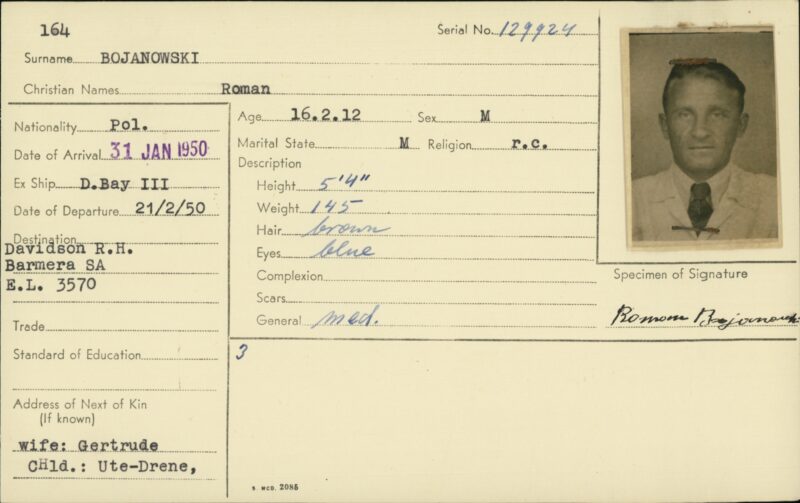 164
Serial No. 129924
Surname BOJANOWSKI
Christian Names Roman
Nationality Pol.
Date of Arrival 31 JAN 1950
Ex Ship D.Bay III
Date of Departure 21/2/50
Destination
Davidson R.H.
Barmera SA
E.L. 3570
Trade
Standard of Education
Address of Next of Kin
(If known)
wife: Gertrude
CHld.: Ute-Drene,
Age 16.2.12 Sex M
Marital State M Religion r.c.
Description
Height 5'4"
Weight 145
Hair brown
Eyes blue
Complexion
Scars
General med.
3
Specimen of Signature
Roman Bojanowski
S. MCD. 2085